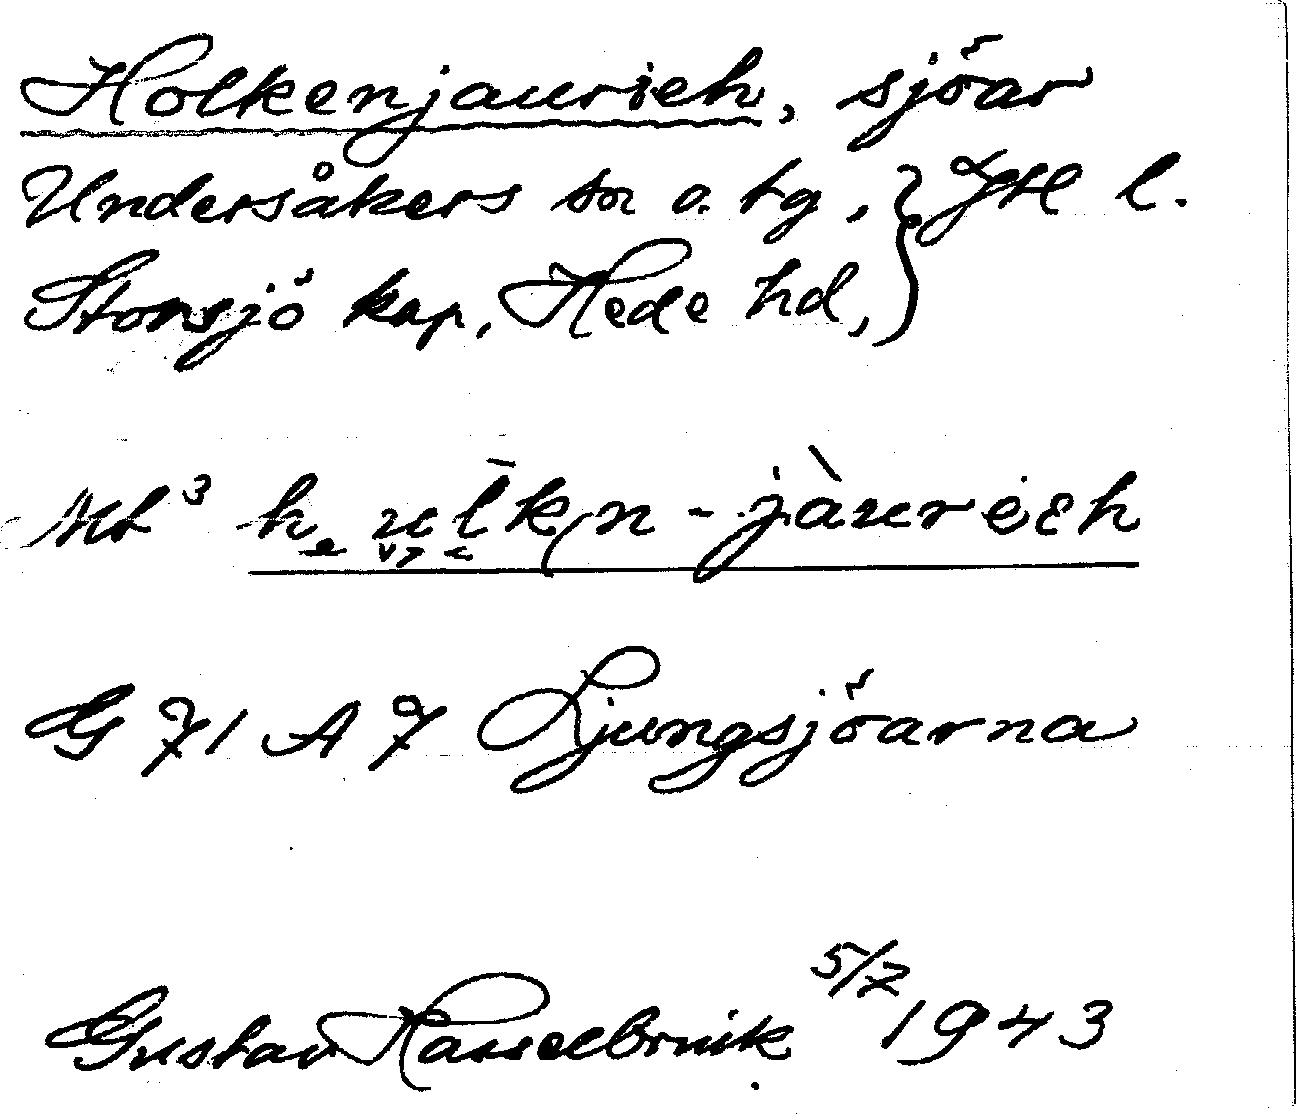 Holkenjaurieh, sjöar
Undersåkers sn o. tg, } JH l.
Storsjö kap, Hede hd,
Mt³
G 71 A 7 Ljungsjöarna
Gustav Hasselbrink 5/7 1943